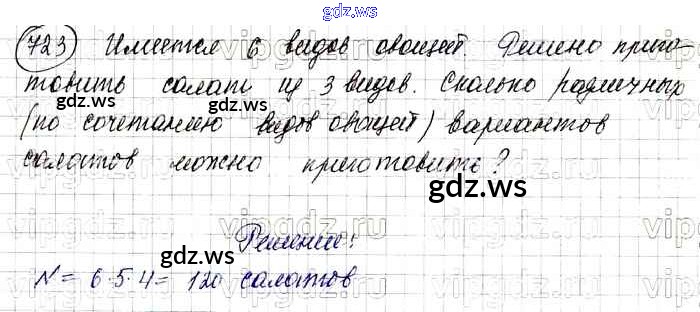 gdz.ws
723 Имеется 6 видов овощей. Решено приго-
товить салат из 3 видов. Сколько различных
(по сочетанию видов овощей) вариантов
салатов можно приготовить?
gdz.ws
gdz.ws
Решение:
gdz.ws
N = 6·5·4 = 120 салатов
gdz.ws